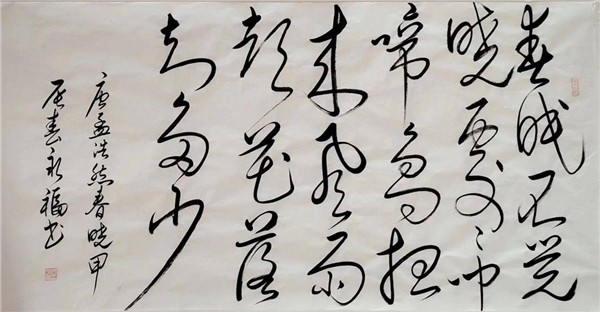 春眠不觉
晓处々闻
啼鸟夜
来风雨
声花落
知多少
唐孟浩然春晓甲
辰春永福书